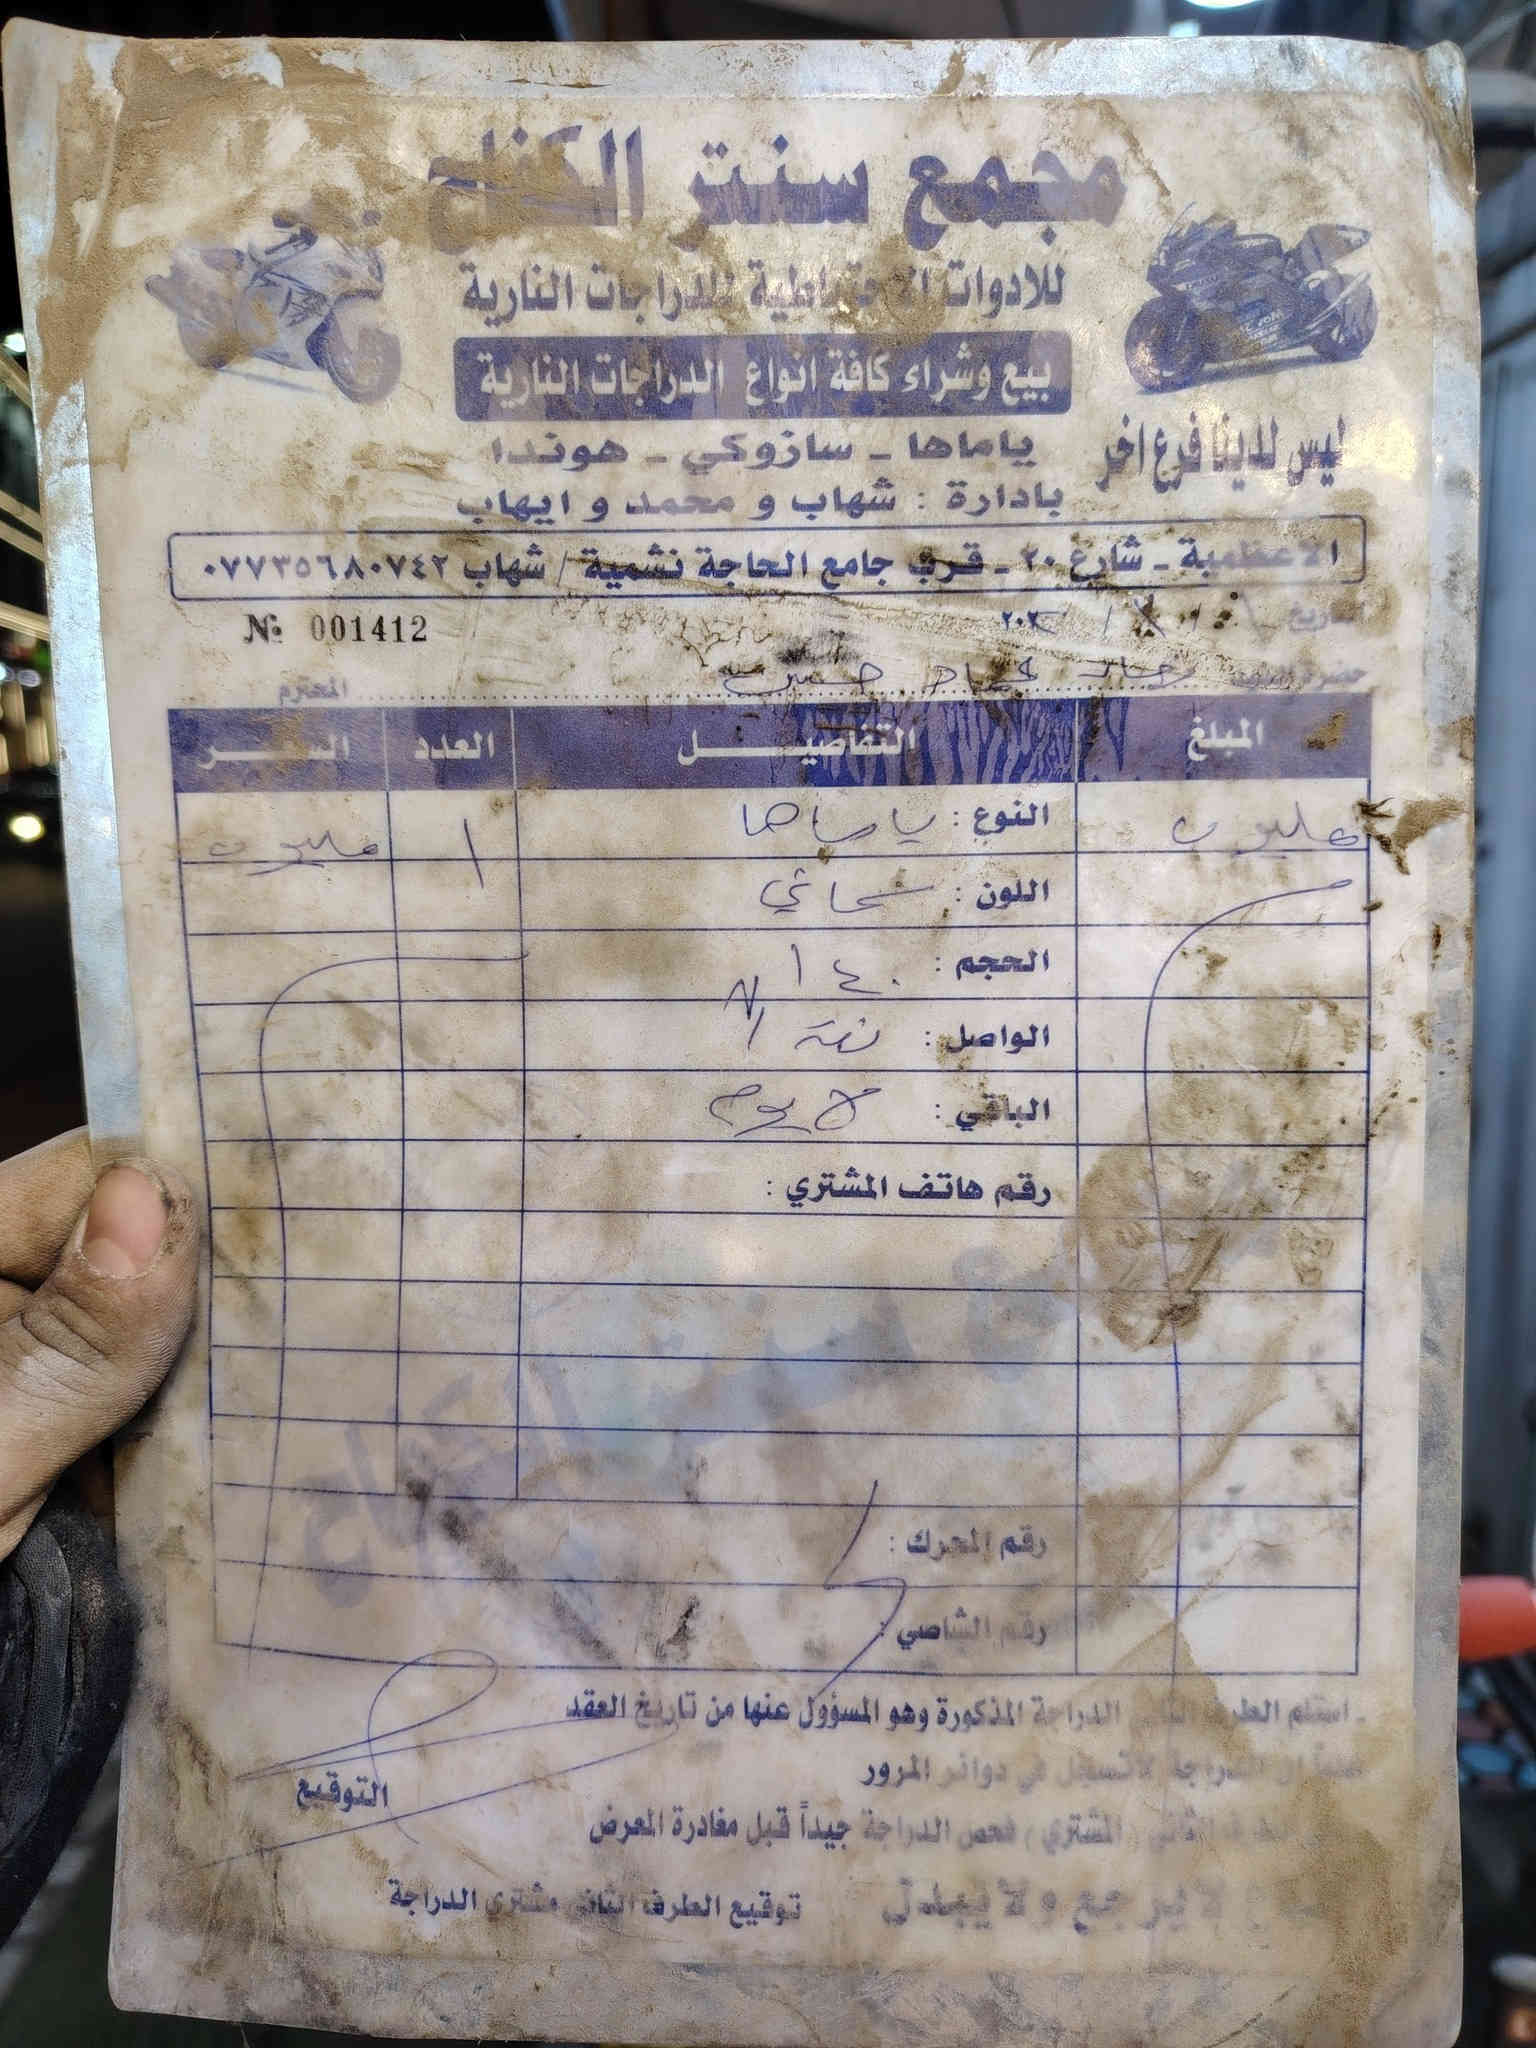 مجمع سنتر الكفاح
للادوات الاحتياطية للدراجات النارية
بيع وشراء كافة انواع الدراجات النارية
ياماها - سازوكي - هوندا
ليس لدينا فرع اخر
بادارة : شهاب و محمد و ايهاب
الاعظمية - شارع ٢٠ - قرب جامع الحاجة نشمية / شهاب ٠٧٧٣٥٦٨٠٧٤٢
№ 001412
التاريخ
حضرة السيد حسين المحترم
المبلغ التفاصيل العدد السعر
مليون النوع : ياماها ١ مليون
اللون :
الحجم :
الواصل :
الباقي : لا يوجد
رقم هاتف المشتري :
رقم المحرك :
رقم الشاصي :
- استلم الطرف الثاني الدراجة المذكورة وهو المسؤول عنها من تاريخ العقد
علماً ان الدراجة لاتسجل في دوائر المرور
التوقيع
الثاني ( المشتري ) فحص الدراجة جيداً قبل مغادرة المعرض
لا يرجع ولا يبدل
توقيع الطرف الثاني مشتري الدراجة